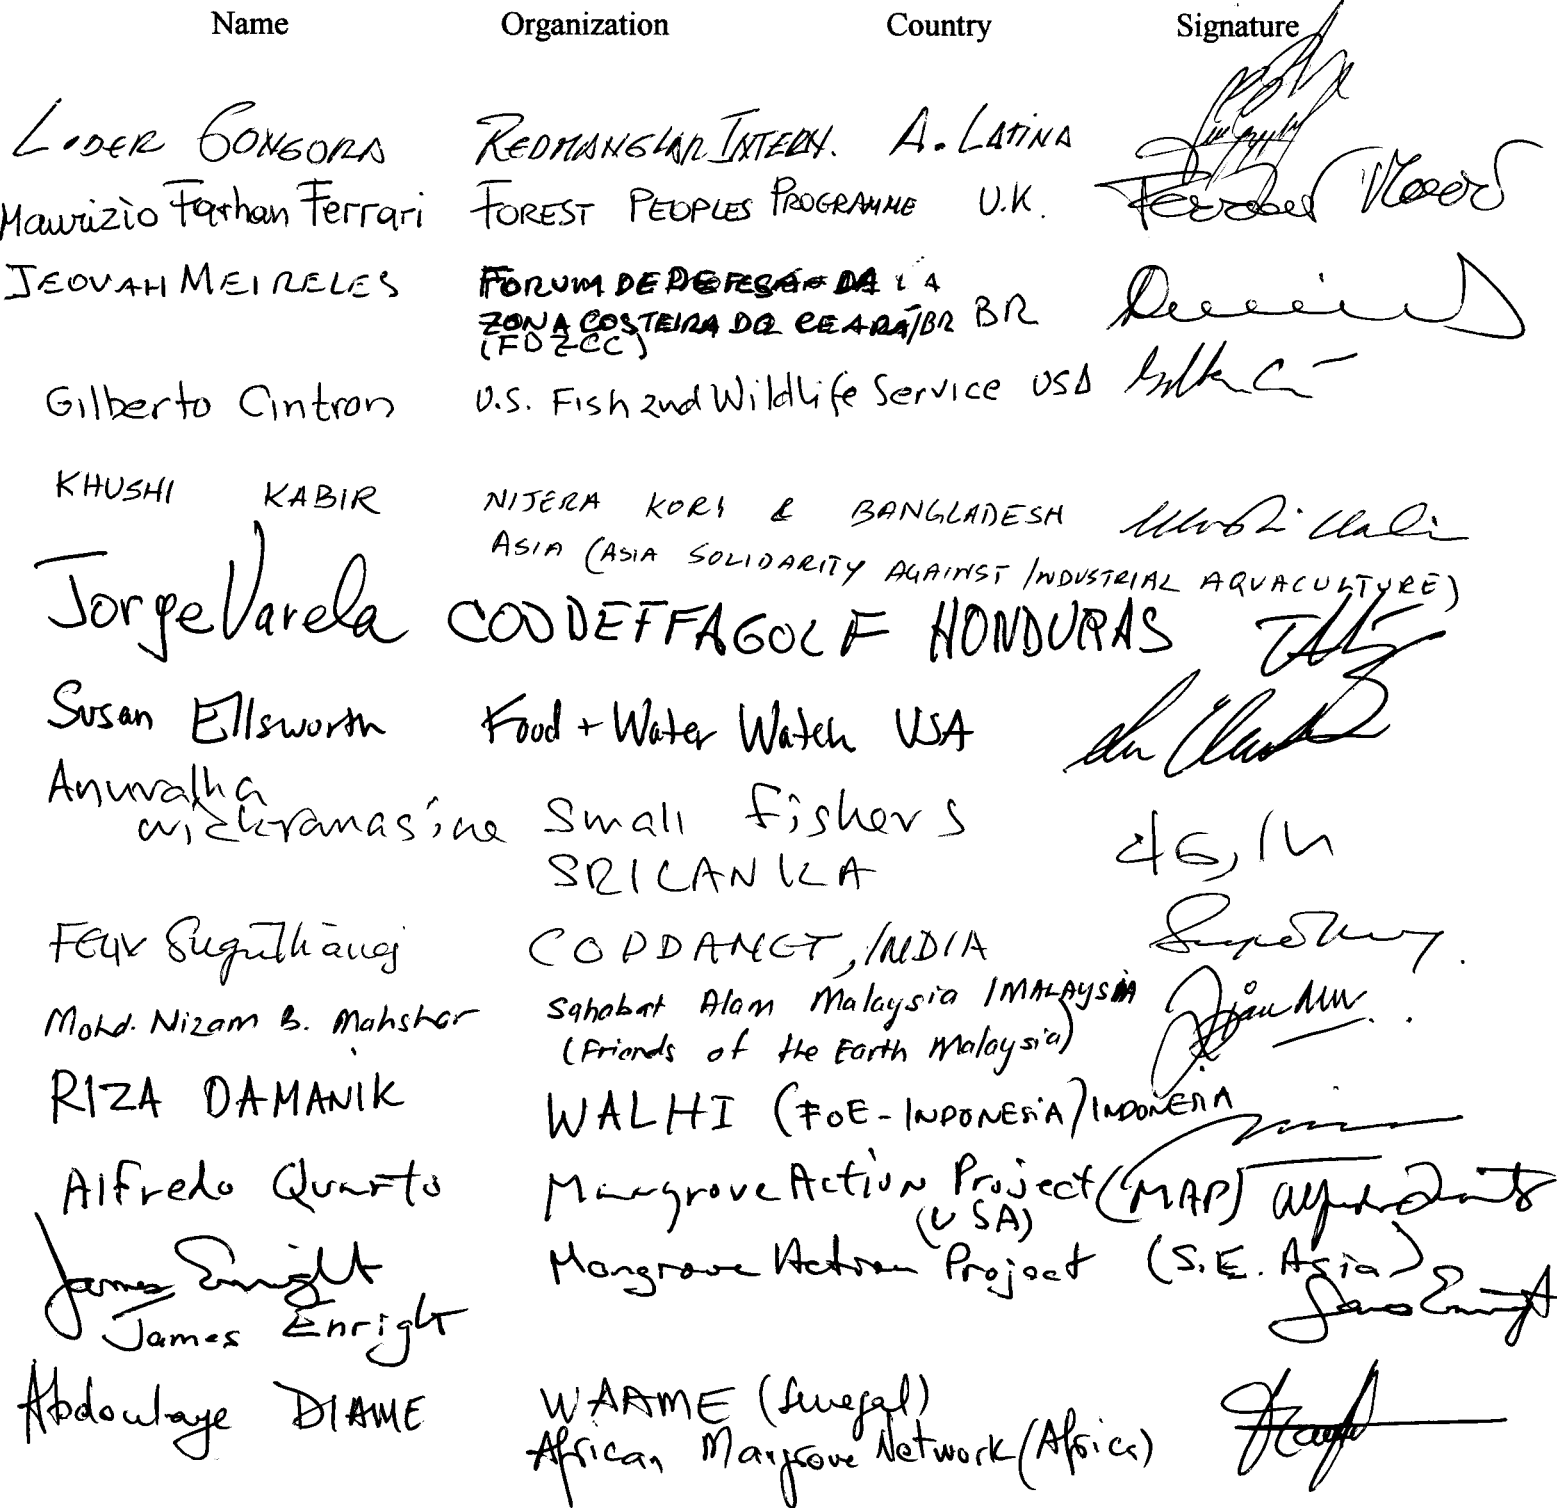 Name Organization Country Signature
LIDER GONGORA REDMANGLAR INTERN. A. LATINA
Maurizio Farhan Ferrari FOREST PEOPLES PROGRAMME U.K.
JEOVAH MEIRELES FORUM DE DEFESA DA
ZONA COSTEIRA DO CEARÁ/BR BR
(FDZCC)
Gilberto Cintron U.S. Fish and Wildlife Service USA
KHUSHI KABIR NIJERA KORI & BANGLADESH
ASIA (ASIA SOLIDARITY AGAINST INDUSTRIAL AQUACULTURE)
Jorge Varela CODDEFFAGOLF HONDURAS
Susan Ellsworth Food + Water Watch USA
Anuradha
wickramasine Small fishers
SRILANKA
FELIX Sugirtharaj COPDANET, INDIA
Mohd. Nizam B. Mahshar Sahabat Alam Malaysia / MALAYSIA
(Friends of the Earth Malaysia)
RIZA DAMANIK WALHI (FOE-INDONESIA) INDONESIA
Alfredo Quarto Mangrove Action Project (MAP) Alfredo Quarto
(USA)
James Enright Mangrove Action Project (S.E. Asia)
James Enright James Enright
Abdoulaye DIAME WAAME (Senegal)
African Mangrove Network (Africa)